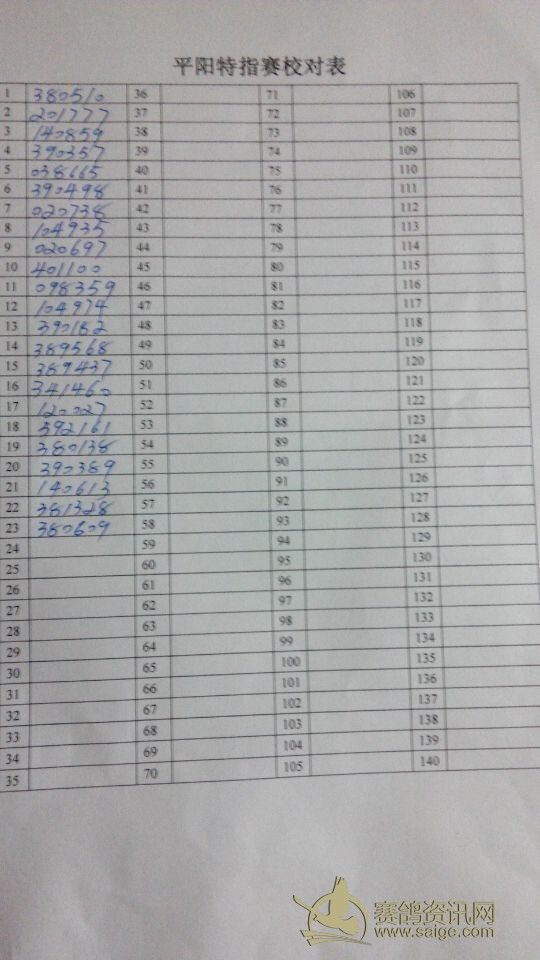 平阳特指赛校对表
1 380510 36 71 106
2 201777 37 72 107
3 140859 38 73 108
4 390357 39 74 109
5 038665 40 75 110
6 390498 41 76 111
7 020738 42 77 112
8 104935 43 78 113
9 020697 44 79 114
10 401100 45 80 115
11 098359 46 81 116
12 104974 47 82 117
13 390182 48 83 118
14 389568 49 84 119
15 389437 50 85 120
16 341460 51 86 121
17 120027 52 87 122
18 392161 53 88 123
19 380138 54 89 124
20 390389 55 90 125
21 140613 56 91 126
22 381328 57 92 127
23 380609 58 93 128
24 59 94 129
25 60 95 130
26 61 96 131
27 62 97 132
28 63 98 133
29 64 99 134
30 65 100 135
31 66 101 136
32 67 102 137
33 68 103 138
34 69 104 139
35 70 105 140
赛鸽资讯网
www.saige.com